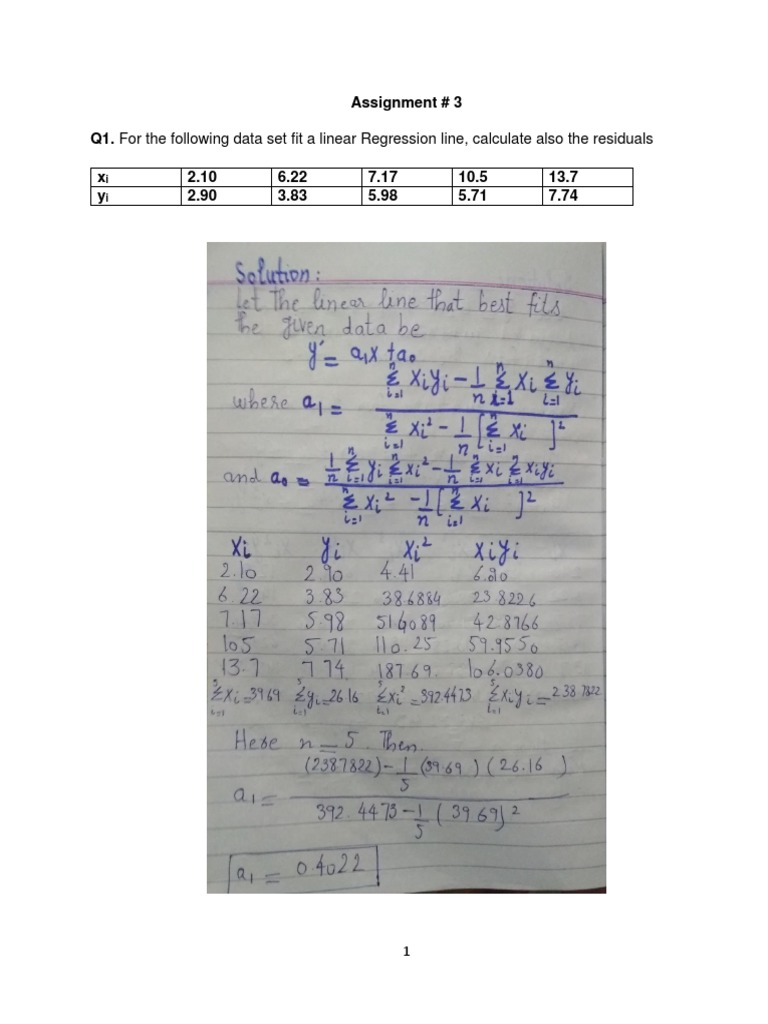 Assignment # 3
Q1. For the following data set fit a linear Regression line, calculate also the residuals
xᵢ 2.10 6.22 7.17 10.5 13.7
yᵢ 2.90 3.83 5.98 5.71 7.74
Solution:
Let The linear line that best fits
the given data be
y' = a₁x + a₀
where a₁ = (Σⁿᵢ₌₁ xᵢyᵢ - 1/n Σⁿᵢ₌₁ xᵢ Σⁿᵢ₌₁ yᵢ) / (Σⁿᵢ₌₁ xᵢ² - 1/n [Σⁿᵢ₌₁ xᵢ]²)
and a₀ = (1/n Σⁿᵢ₌₁ yᵢ Σⁿᵢ₌₁ xᵢ² - 1/n Σⁿᵢ₌₁ xᵢ Σⁿᵢ₌₁ xᵢyᵢ) / (Σⁿᵢ₌₁ xᵢ² - 1/n [Σⁿᵢ₌₁ xᵢ]²)
xᵢ yᵢ xᵢ² xᵢyᵢ
2.10 2.90 4.41 6.20
6.22 3.83 38.6884 23.8226
7.17 5.98 51.4089 42.8766
105 5.71 110.25 59.9550
13.7 7.74 187.69 106.0380
Σ⁵ᵢ₌₁ xᵢ = 39.69 Σ⁵ᵢ₌₁ yᵢ = 26.16 Σ⁵ᵢ₌₁ xᵢ² = 392.4473 Σ⁵ᵢ₌₁ xᵢyᵢ = 238.7822
Here n = 5. Then.
a₁ = ((238.7822) - 1/5 (39.69) (26.16)) / (392.4473 - 1/5 (39.69)²)
a₁ = 0.4022
1